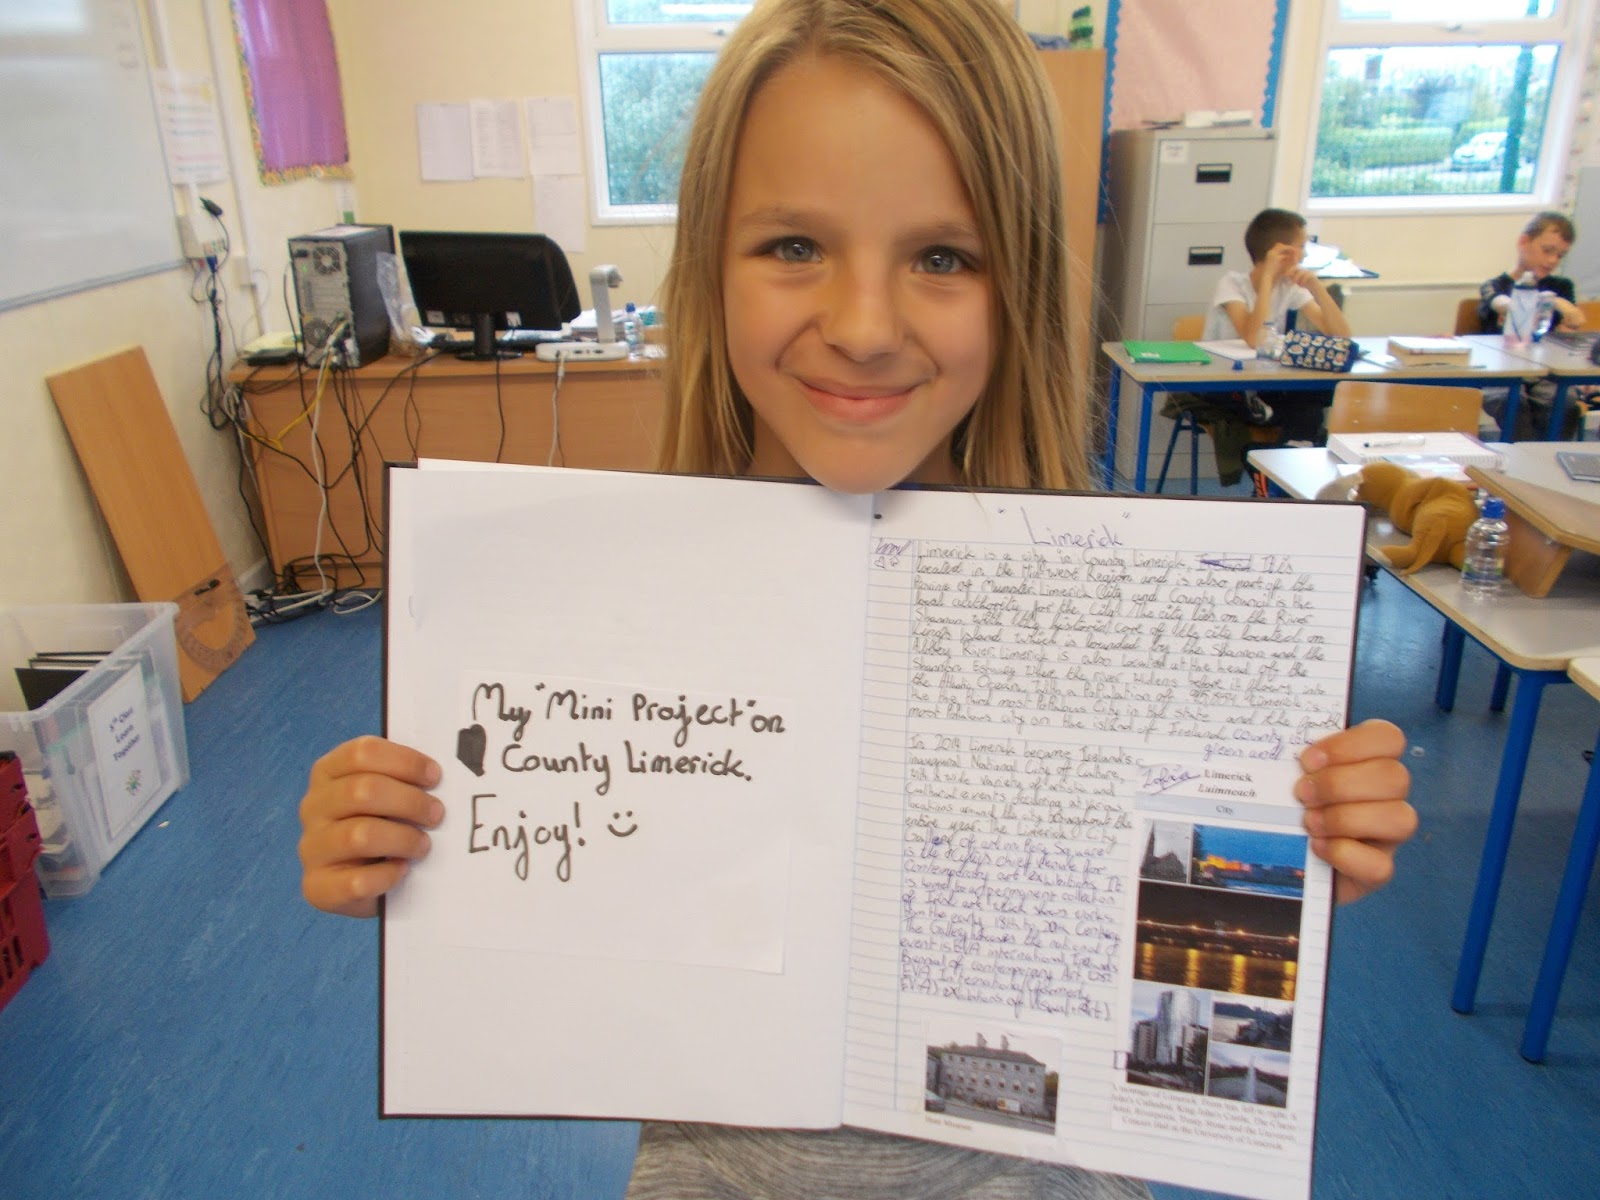 My "Mini Project" on
County Limerick.
Enjoy!
"Limerick"
Limerick is a city in County Limerick, Ireland It is
located in the Mid-west Region and is also part of the
of Munster. Limerick City and County Council is the
local authority for the City. The city lies on the River
Shannon, with the historic core of the city located on
King's Island, which is bounded by the Shannon and the
Abbey River. Limerick is also located at the head of the
Shannon Estuary where the river widens before it flows into
the Atlantic Ocean. With a Population of Limerick is
the third most Populous City in the state and the fourth
most Populous city on the island of Ireland County
green and
In 2014 Limerick became Ireland's
inaugural National City of Culture,
with a wide variety of artistic and
Cultural events occurring at various
locations around the city throughout the
entire year. The Limerick City
Gallery of art in Pery Square
is the city's chief venue for
Contemporary art exhibitions. It
is home to a permanent collection
of Irish art, which shows works
from the early 18th to 20th Century
The Gallery houses the national
event is EVA international, Ireland's
Biennial of Contemporary Art,
EVA International (formerly
EV+A) exhibitions of Visual Art)
Limerick
Luimneach
City
Hunt Museum
A montage of Limerick. From top, left to right: St
John's Cathedral, King John's Castle, The Clarion
Hotel, Riverpoint, Treaty Stone and the University
Concert Hall at the University of Limerick
5th Class
Learn
Together